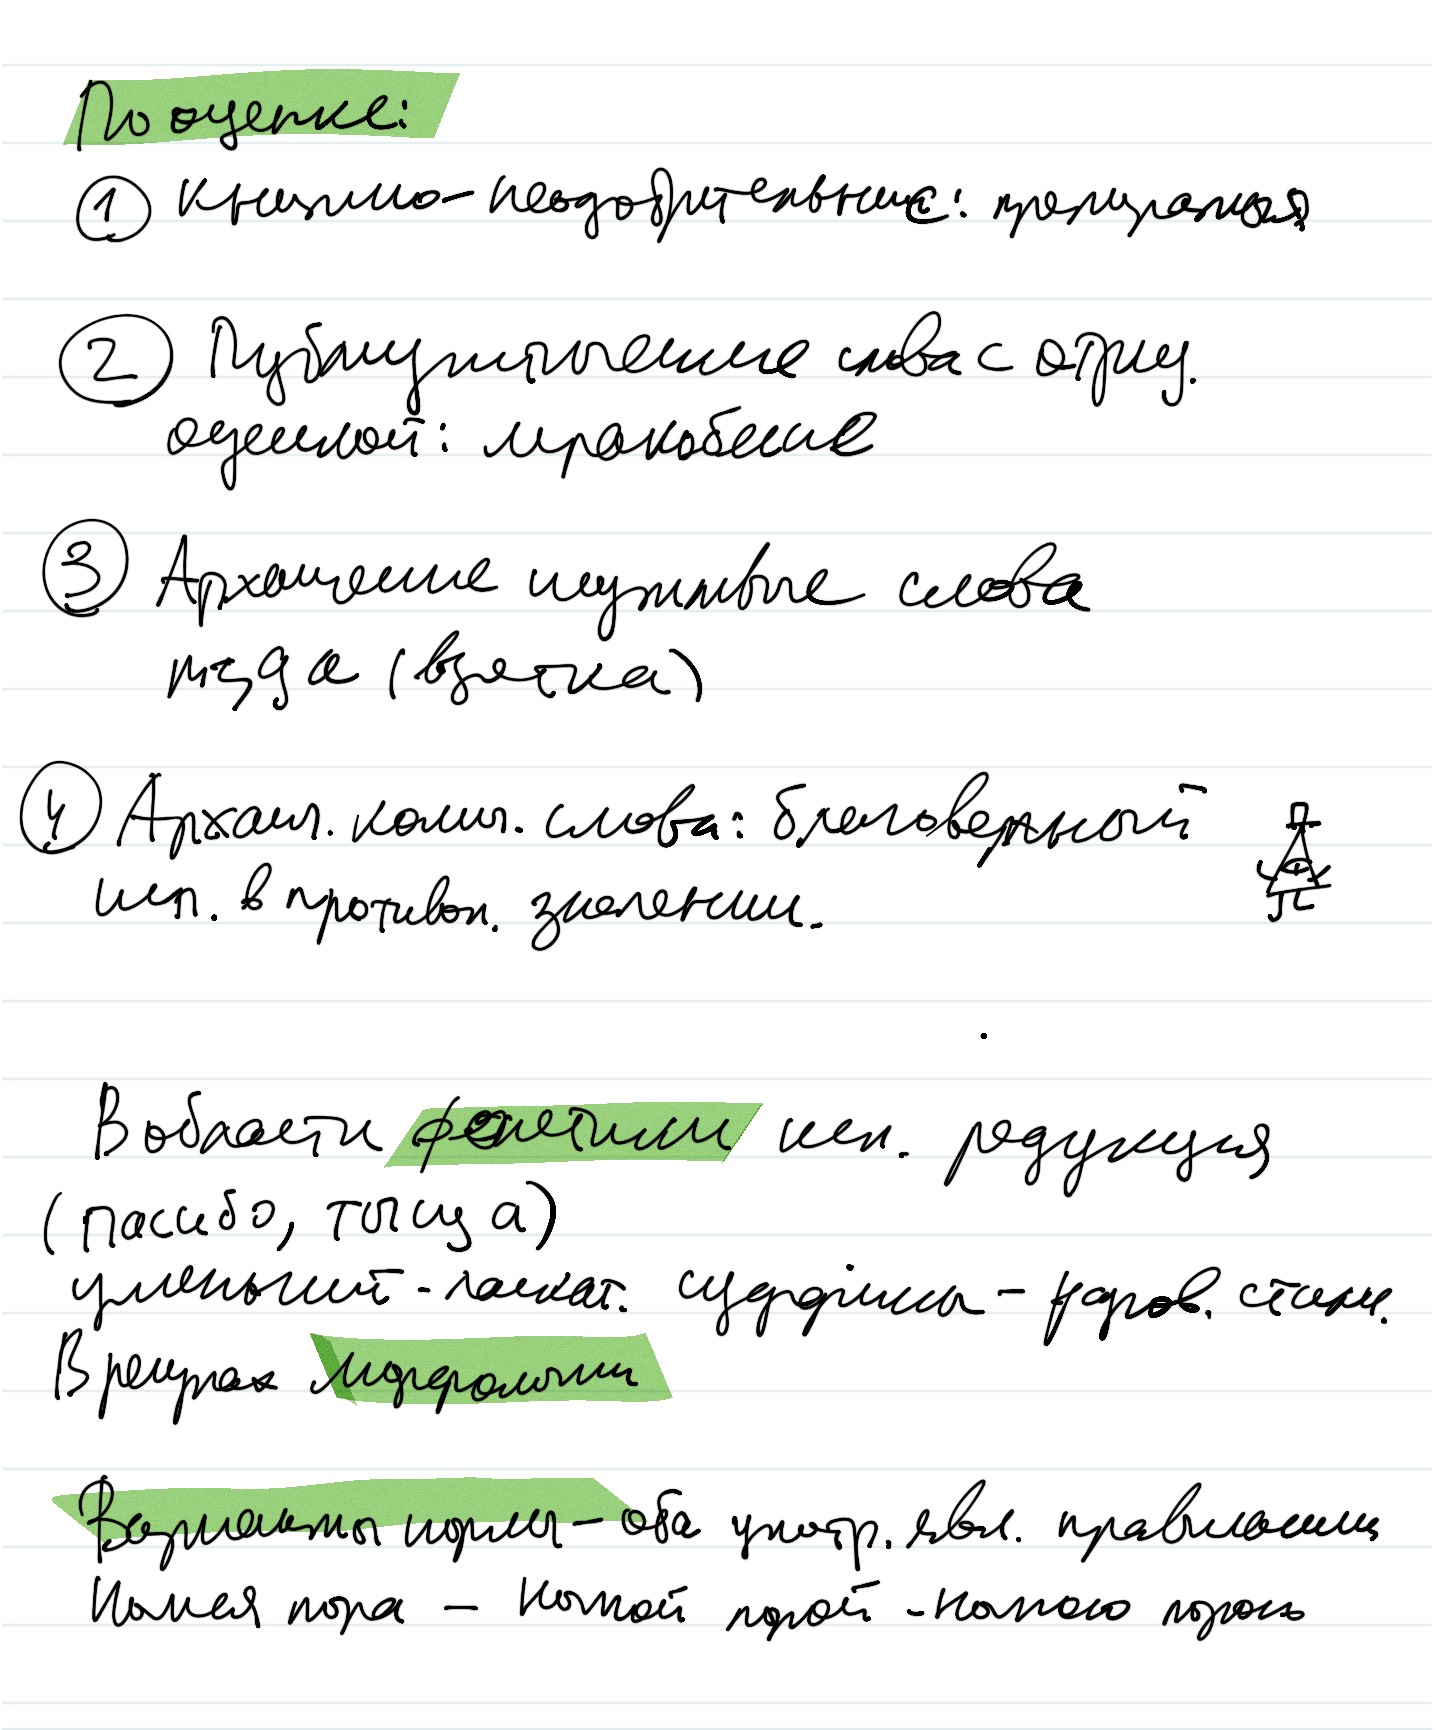 По оценке:
① Книжно-неодобрительные:
② Публицистические слова с отриц.
оценкой: мракобесие
③ Архаические шутливые слова
мзда (взятка)
④ Архаич. комич. слова: благоверный
исп. в противоп. значении.
В области фонетики исп. редукция
(пасибо, тыща)
уменьшит-ласкат. суффиксы - разгов. стиль.
В рамках морфологии
Варианты нормы - оба употр. явл. правильными
Ночная пора - ночной порой - ночною порою